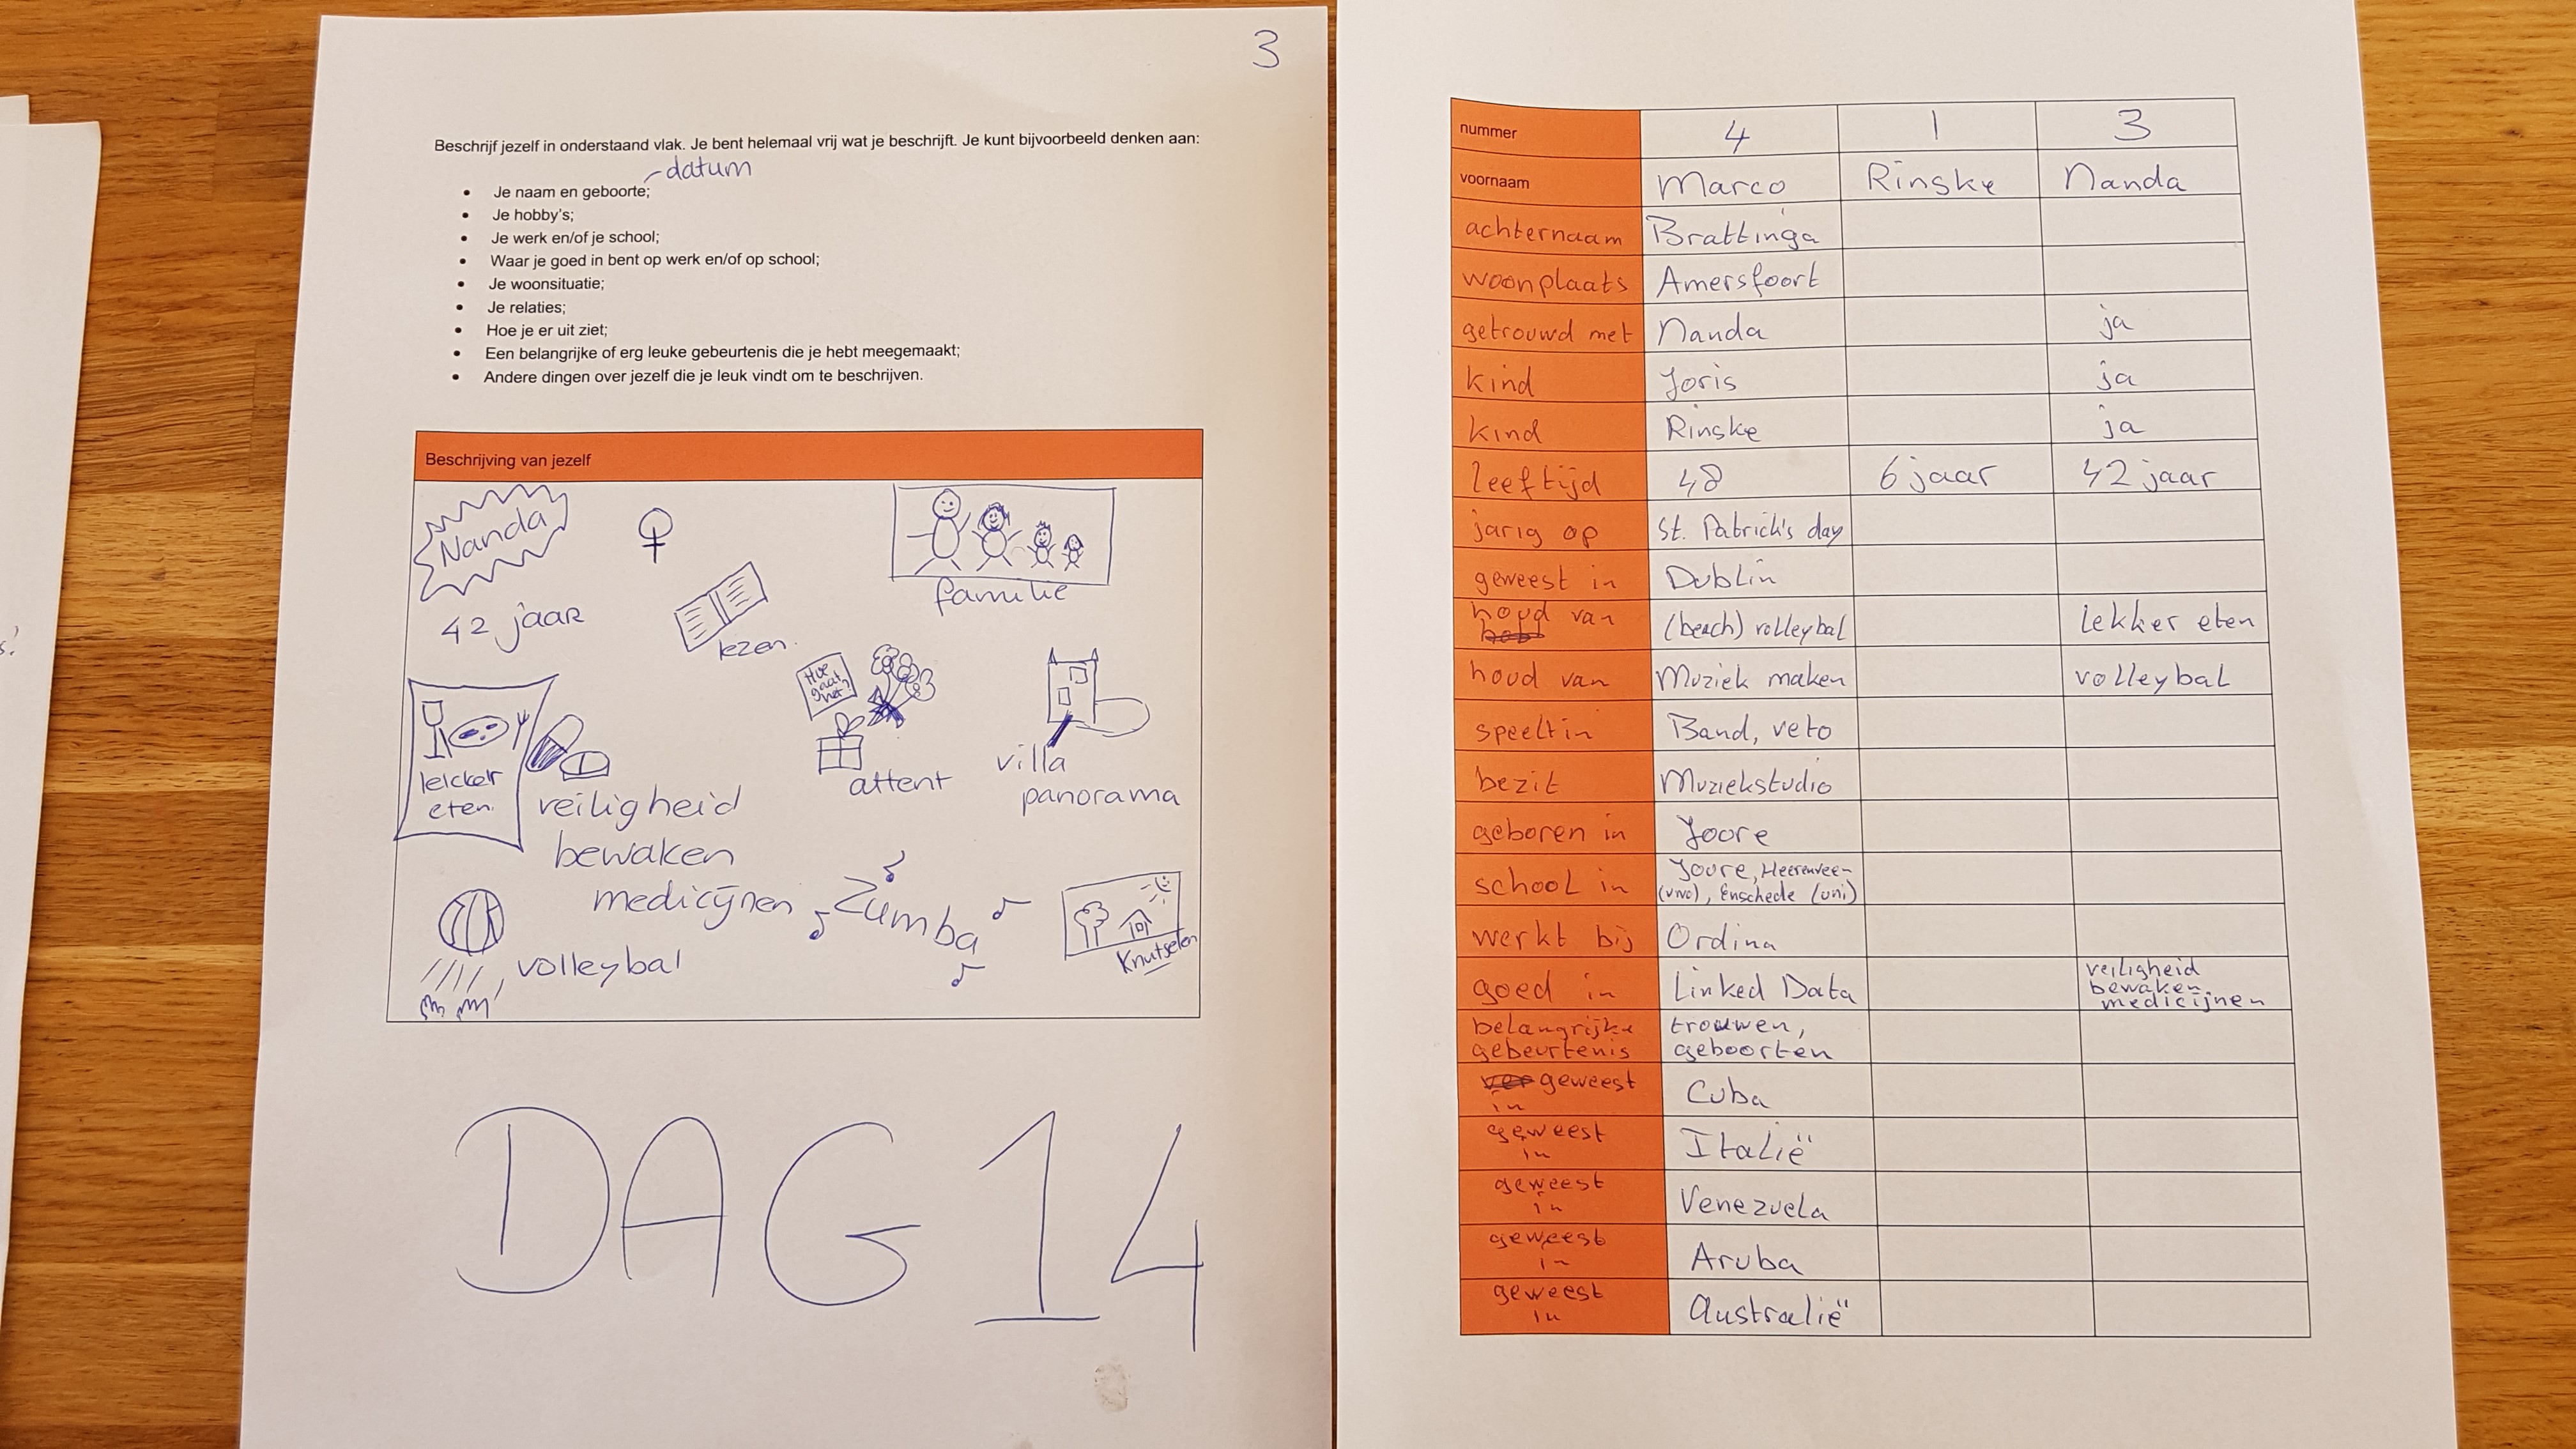 3
Beschrijf jezelf in onderstaand vlak. Je bent helemaal vrij wat je beschrijft. Je kunt bijvoorbeeld denken aan:
datum
• Je naam en geboorte;
• Je hobby's;
• Je werk en/of je school;
• Waar je goed in bent op werk en/of op school;
• Je woonsituatie;
• Je relaties;
• Hoe je er uit ziet;
• Een belangrijke of erg leuke gebeurtenis die je hebt meegemaakt;
• Andere dingen over jezelf die je leuk vindt om te beschrijven.
Beschrijving van jezelf
Nanda
♀
familie
42 jaar
lezen
Hoe gaat het?
attent
villa
panorama
lekker
eten
veiligheid
bewaken
medicijnen
Zumba
Knutselen
volleybal
DAG 14
nummer 4 1 3
voornaam Marco Rinske Nanda
achternaam Brattinga
woonplaats Amersfoort
getrouwd met Nanda ja
kind Joris ja
kind Rinske ja
leeftijd 48 6 jaar 42 jaar
jarig op St. Patrick's day
geweest in Dublin
houd van (beach) volleybal lekker eten
houd van Muziek maken volleybal
speelt in Band, veto
bezit Muziekstudio
geboren in Joore
school in Joore, Heerenveen (vwo), Enschede (uni)
werkt bij Ordina
goed in Linked Data veiligheid bewaken medicijnen
belangrijke gebeurtenis trouwen, geboorten
geweest in Cuba
geweest in Italië
geweest in Venezuela
geweest in Aruba
geweest in Australië